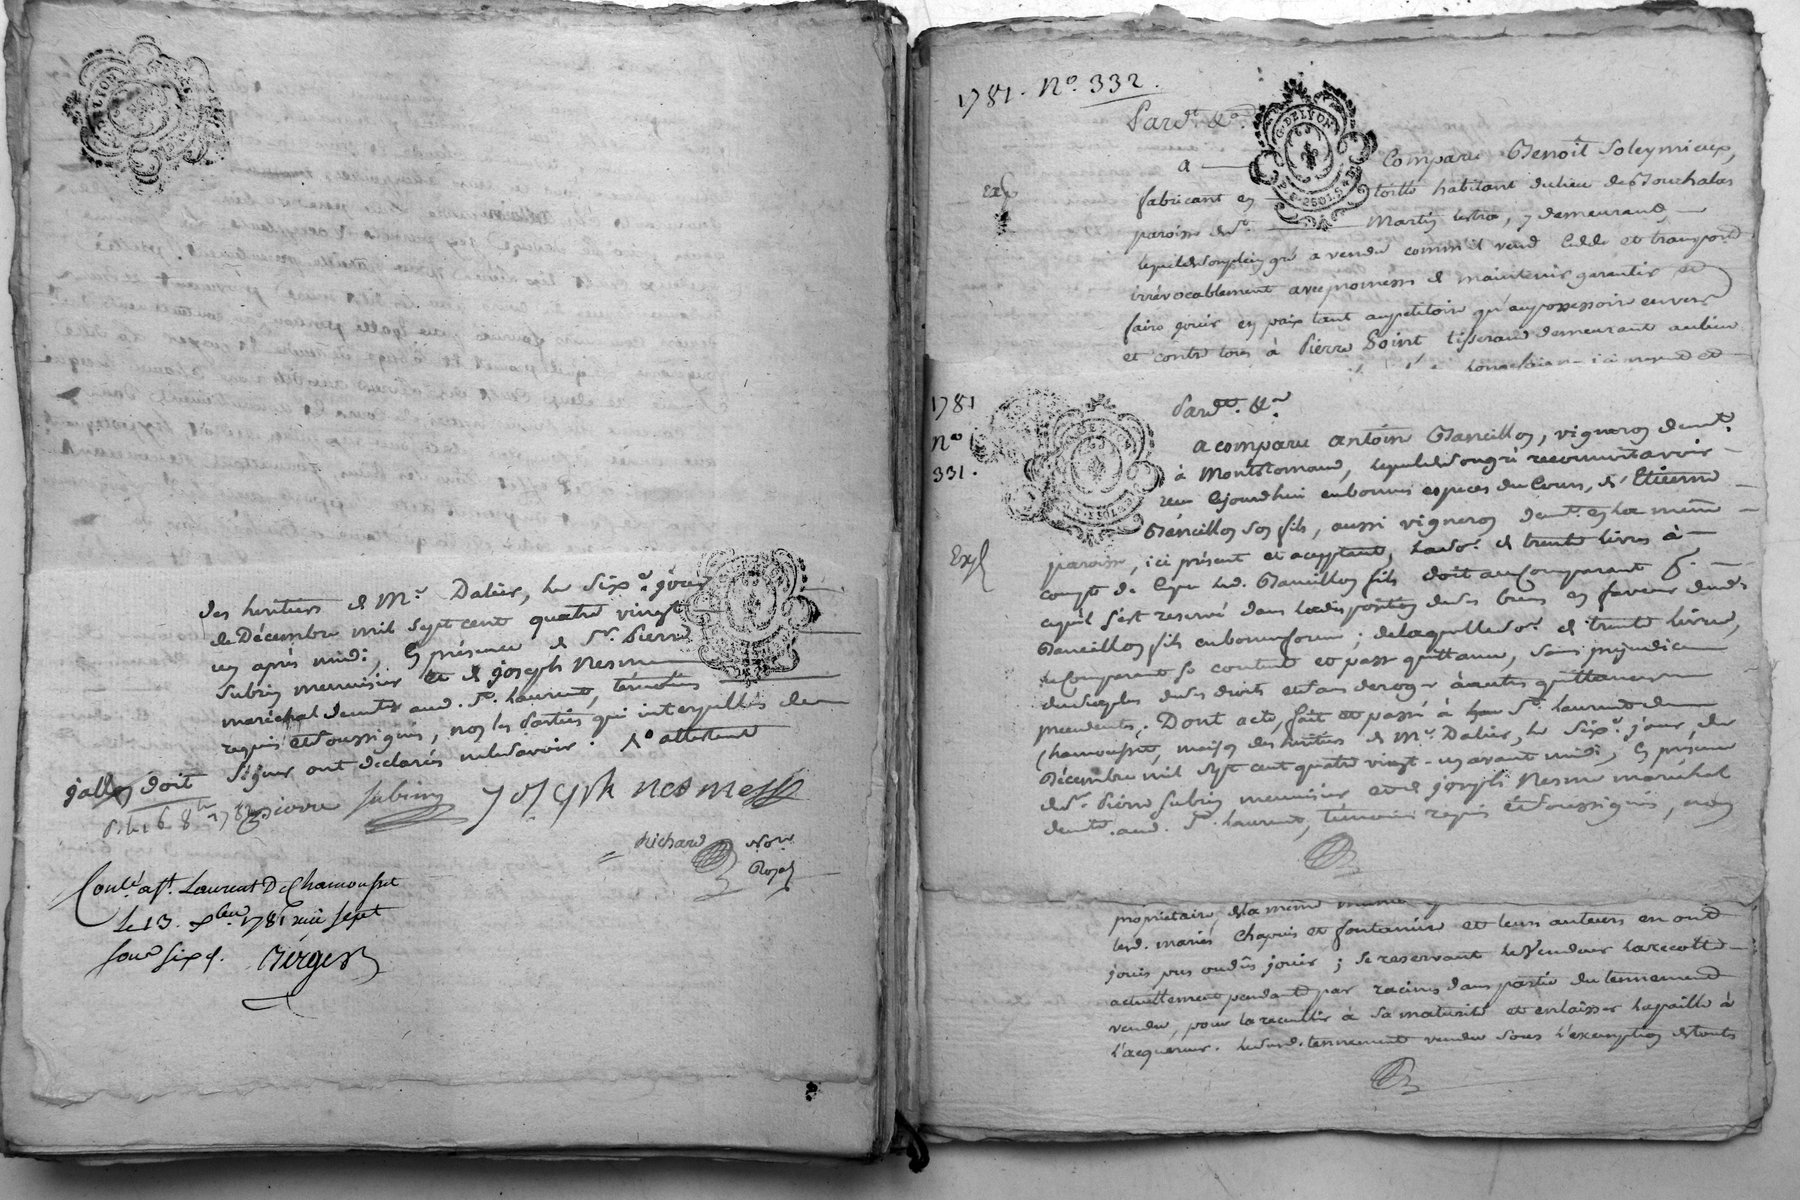 des heritiers de Mr. Dalier, le six.e jour
de Décembre mil sept cent quatre vingt
un après midi, En présence de Sr. Pierre
Subrin menuisier et de joseph Nesme
maréchal demts. aud. St. laurent, témoins
requis et soussignés, non les Parties qui interpellés de
signer ont déclarés ne le savoir.
doit
pierre subrin joseph nesme
Richard Nore.
Royal
Conlé a st. Laurent De Chamousset
le 13 xbre 1781 reçu sept
sous six d. Berger
1781. No. 332.
Pardt. &a.
G. DE LYON
2.SOLS
a Comparu Benoit Soleymieux,
fabricant en toille habitant du lieu de
paroisse de St. Martin lestra, y demeurant,
lequel de son plein gré a vendu comme il vend Cedde et transporte
irrévocablement avec promesse de maintenir garentir et
faire jouir en paix tant au petitoire qu'au possessoire envers
et contre tous à Pierre Point tisserand demeurant au lieu
1781
No.
331.
Pardt. &a.
a comparu antoine Bancillon, vigneron demt.
à Montromand, lequel de son gré reconnoit avoir
reçu Cejourdhui en bonnes especes du Cours, d'Etienne
Bancillon son fils, aussi vigneron demt. en la même
paroisse, ici présent et acceptant, la so. de trente livres à
compte de Ce que led. Bancillon fils doit au Comparant
ce qu'il s'est reservé dans la disposition de ses biens en faveur dud.
Bancillon fils en bonne forme; de laquelle so. de trente livres,
le Comparant se contente et passe quittance, sans préjudice
du surplus de ses droits et sans deroger à autres quittances
precedentes; Dont acte, fait et passé à St. laurent de
Chamousset, maison des heritiers de Mr. Dalier, le six.e jour de
Décembre mil sept cent quatre vingt-un avant midi, En présence
de Sr. Pierre Subrin menuisier et de joseph Nesme maréchal
demts. aud. St. laurent, témoins requis et soussignés, non
propriétaire de la même
led. mariés Chapuis et fontanière et leurs auteurs en ont
jouis pus ou dûs jouir; se reservant le Vendeur la recolte
actuellement pendante par racines dans partie du tennement
vendu, pour la recueillir à sa maturité et en laisser la paille à
l'acquereur. Led. tennement vendu sous l'exemption de touts